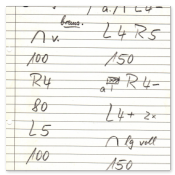 a. ∩ L4-
brems.
∩ v. L4 R5
100 150
R4 a1 R4-
80 L4+ 2x
L5 ∩ lg voll
100 150